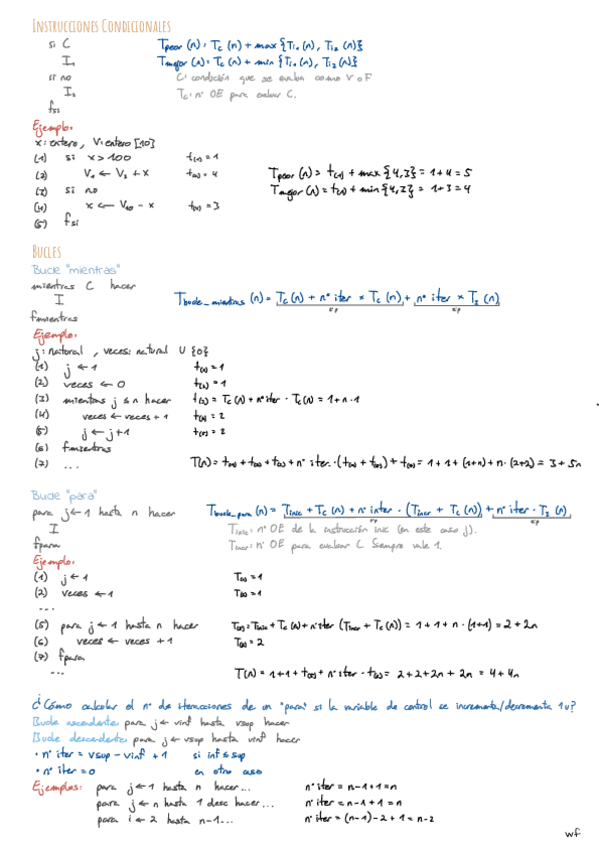 INSTRUCCIONES CONDICIONALES
si C
I₁
si no
I₂
fsi
Tpeor (n) = Tc (n) + max {TI₁ (n), TI₂ (n)}
Tmejor (n) = Tc (n) + min {TI₁ (n), TI₂ (n)}
C: condición que se evalua como V o F
Tc: nº OE para evaluar C.
Ejemplo:
x: entero, V: entero [10]
(1) si x > 100 t(1) = 1
(2) V₄ ← V₃ + x t(2) = 4
(3) si no
(4) x ← V₁₀ - x t(4) = 3
(5) fsi
Tpeor (n) = t(1) + max {4,3} = 1+4 = 5
Tmejor (n) = t(1) + min {4,2} = 1+3 = 4
BUCLES
Bucle "mientras"
mientras C hacer
I
fmientras
Tbucle_mientras (n) = Tc (n) + nº iter × Tc (n) + nº iter × TI (n)
Ejemplo:
j: natural, veces: natural U {0}
(1) j ← 1 t(1) = 1
(2) veces ← 0 t(2) = 1
(3) mientras j ≤ n hacer t(3) = Tc (n) + nº iter · Tc (n) = 1 + n · 1
(4) veces ← veces + 1 t(4) = 2
(5) j ← j+1 t(5) = 2
(6) fmientras
(7) ... T(n) = t(1) + t(2) + t(3) + nº iter · (t(4) + t(5)) + t(6) = 1 + 1 + (1+n) + n · (2+2) = 3 + 5n
Bucle "para"
para j ← 1 hasta n hacer
I
fpara
Tbucle_para (n) = Tinic + Tc (n) + nº inter · (Tincr + Tc (n)) + nº iter · TI (n)
Tinic: nº OE de la instrucción inic (en este caso j).
Tincr: nº OE para evaluar C. Siempre vale 1.
Ejemplo:
(1) j ← 1 T(1) = 1
(2) veces ← 1 T(2) = 1
...
(5) para j ← 1 hasta n hacer T(5) = Tinic + Tc (n) + nº iter (Tincr + Tc (n)) = 1 + 1 + n · (1+1) = 2 + 2n
(6) veces ← veces + 1 T(6) = 2
(7) fpara
... T(n) = 1+1 + t(5) + nº iter · t(6) = 2+2+2n + 2n = 4+4n
¿Cómo calcular el nº de iteracciones de un "para" si la variable de control se incrementa/decrementa 1u?
Bucle ascendente: para j ← vinf hasta vsup hacer
Bucle descendente: para j ← vsup hasta vinf hacer
· nº iter = vsup - vinf + 1 si inf ≤ sup
· nº iter = 0 en otro caso
Ejemplos: para j ← 1 hasta n hacer... nº iter = n-1+1 = n
para j ← n hasta 1 desc hacer... nº iter = n-1+1 = n
para i ← 2 hasta n-1... nº iter = (n-1)-2+1 = n-2
wf